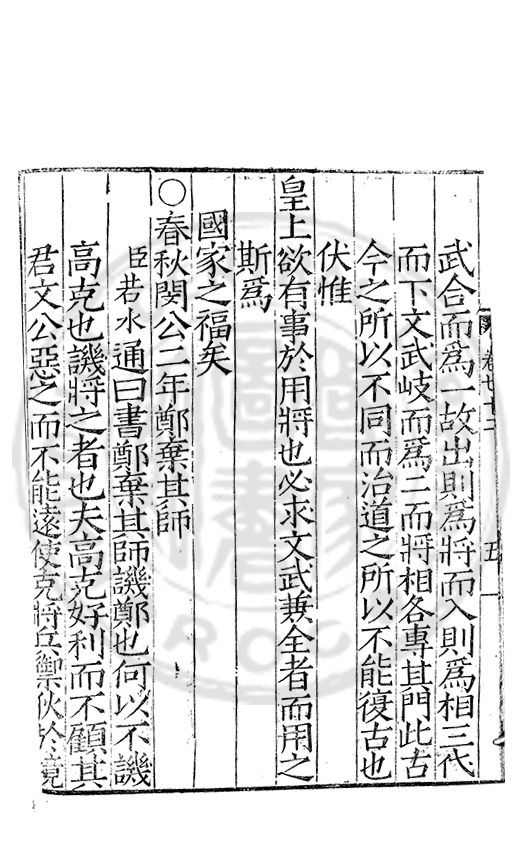 卷七十二 五
武合而爲一故出則爲將而入則爲相三代
而下文武岐而爲二而將相各專其門此古
今之所以不同而治道之所以不能復古也
伏惟
皇上欲有事於用將也必求文武兼全者而用之
斯爲
國家之福矣
○春秋閔公二年鄭棄其師
臣若水通曰書鄭棄其師譏鄭也何以不譏
高克也譏將之者也夫高克好利而不顧其
君文公惡之而不能遠使克將兵禦狄於竟